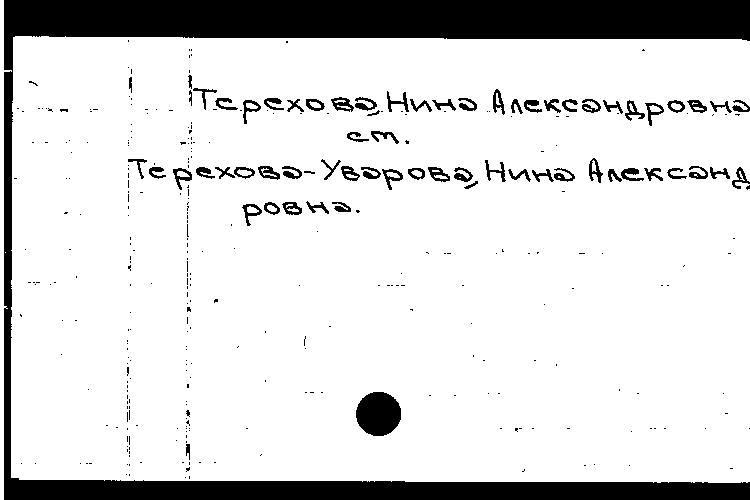 Терехова, Нина Александровна
ст.
Терехова-Уварова, Нина Александ
ровна.